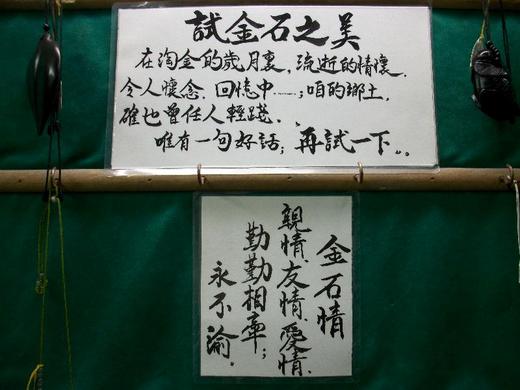 試金石之美
在淘金的歲月裏，流逝的情懷．
令人懷念．回憶中……；咱的鄉土，
確也曾任人輕踐．
唯有一句好話；再試一下。。
金石情
親情、友情、愛情．
勤勤相牽；
永不渝．